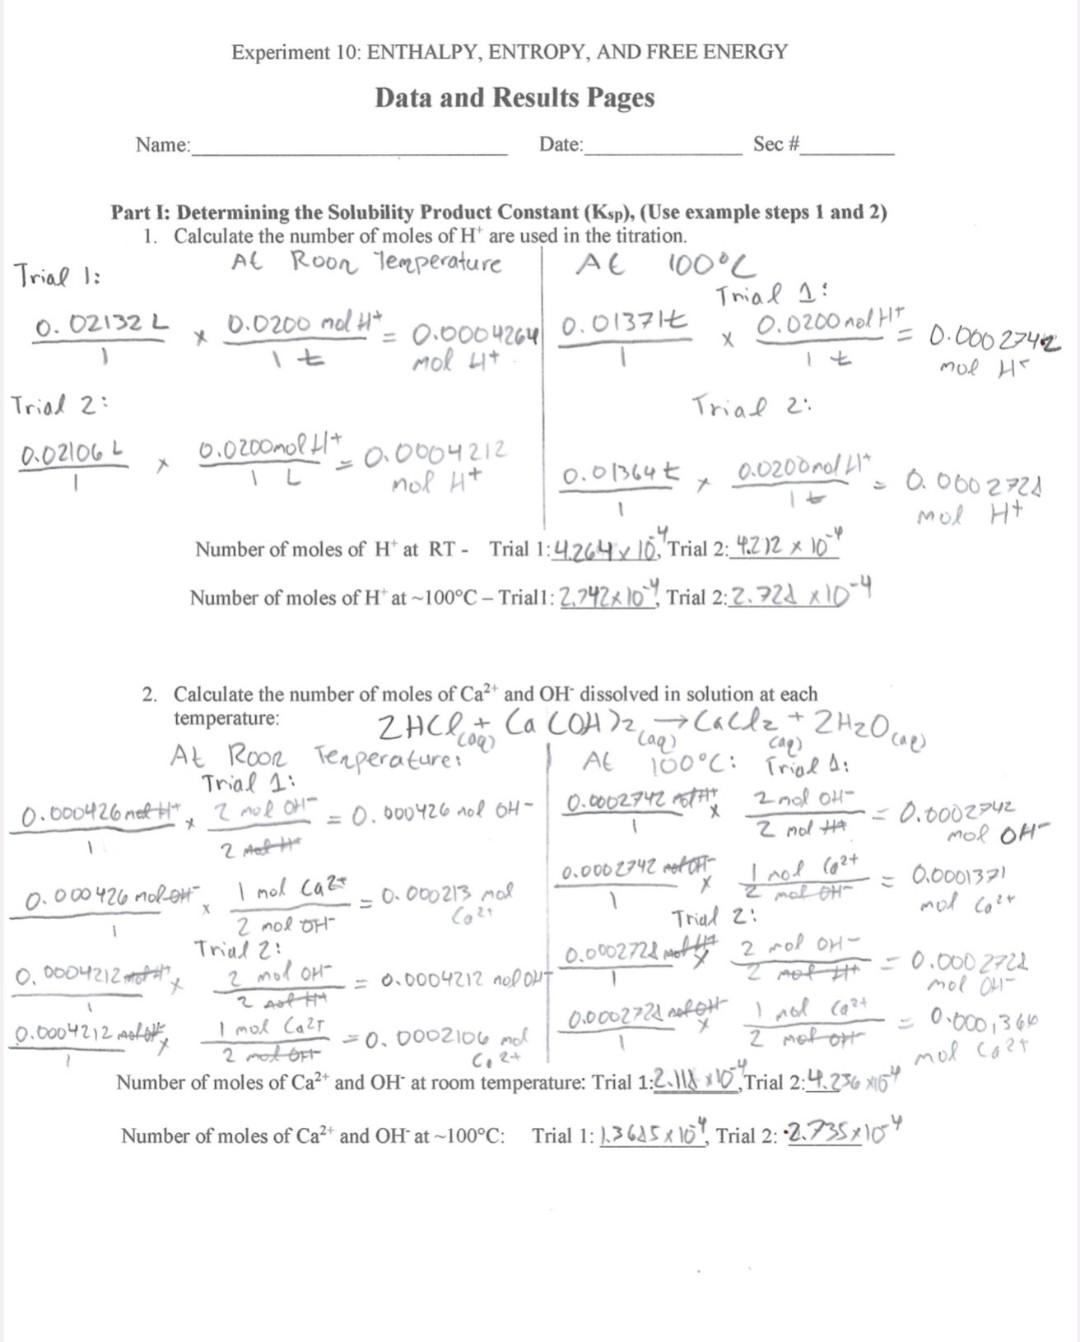 Experiment 10: ENTHALPY, ENTROPY, AND FREE ENERGY
Data and Results Pages
Name: Date: Sec #
Part I: Determining the Solubility Product Constant (Ksp), (Use example steps 1 and 2)
1. Calculate the number of moles of H⁺ are used in the titration.
At Room Temperature
Trial 1:
0.02132 L / 1 × 0.0200 mol H⁺ / 1 L = 0.0004264 mol H⁺
Trial 2:
0.02106 L / 1 × 0.0200 mol H⁺ / 1 L = 0.0004212 mol H⁺
At 100°C
Trial 1:
0.01371 L / 1 × 0.0200 mol H⁺ / 1 L = 0.0002742 mol H⁺
Trial 2:
0.01364 L / 1 × 0.0200 mol H⁺ / 1 L = 0.0002728 mol H⁺
Number of moles of H⁺ at RT - Trial 1: 4.264 × 10⁻⁴, Trial 2: 4.212 × 10⁻⁴
Number of moles of H⁺ at ~100°C – Trial1: 2.742 × 10⁻⁴, Trial 2: 2.728 × 10⁻⁴
2. Calculate the number of moles of Ca²⁺ and OH⁻ dissolved in solution at each
temperature:
2HCl(aq) + Ca(OH)2(aq) → CaCl2(aq) + 2H2O(aq)
At Room Temperature:
Trial 1:
0.000426 mol H⁺ / 1 × 2 mol OH⁻ / 2 mol H⁺ = 0.000426 mol OH⁻
0.000426 mol OH⁻ / 1 × 1 mol Ca²⁺ / 2 mol OH⁻ = 0.000213 mol Ca²⁺
Trial 2:
0.0004212 mol H⁺ / 1 × 2 mol OH⁻ / 2 mol H⁺ = 0.0004212 mol OH⁻
0.0004212 mol OH⁻ / 1 × 1 mol Ca²⁺ / 2 mol OH⁻ = 0.0002106 mol Ca²⁺
At 100°C: Trial 1:
0.0002742 mol H⁺ / 1 × 2 mol OH⁻ / 2 mol H⁺ = 0.0002742 mol OH⁻
0.0002742 mol OH⁻ / 1 × 1 mol Ca²⁺ / 2 mol OH⁻ = 0.0001371 mol Ca²⁺
Trial 2:
0.0002728 mol H⁺ / 1 × 2 mol OH⁻ / 2 mol H⁺ = 0.0002728 mol OH⁻
0.0002728 mol OH⁻ / 1 × 1 mol Ca²⁺ / 2 mol OH⁻ = mol Ca²⁺
Number of moles of Ca²⁺ and OH⁻ at room temperature: Trial 1: 2.118 × 10⁻⁴, Trial 2: 4.236 × 10⁻⁴
Number of moles of Ca²⁺ and OH⁻ at ~100°C: Trial 1: × 10⁻⁴, Trial 2: 2.735 × 10⁻⁴